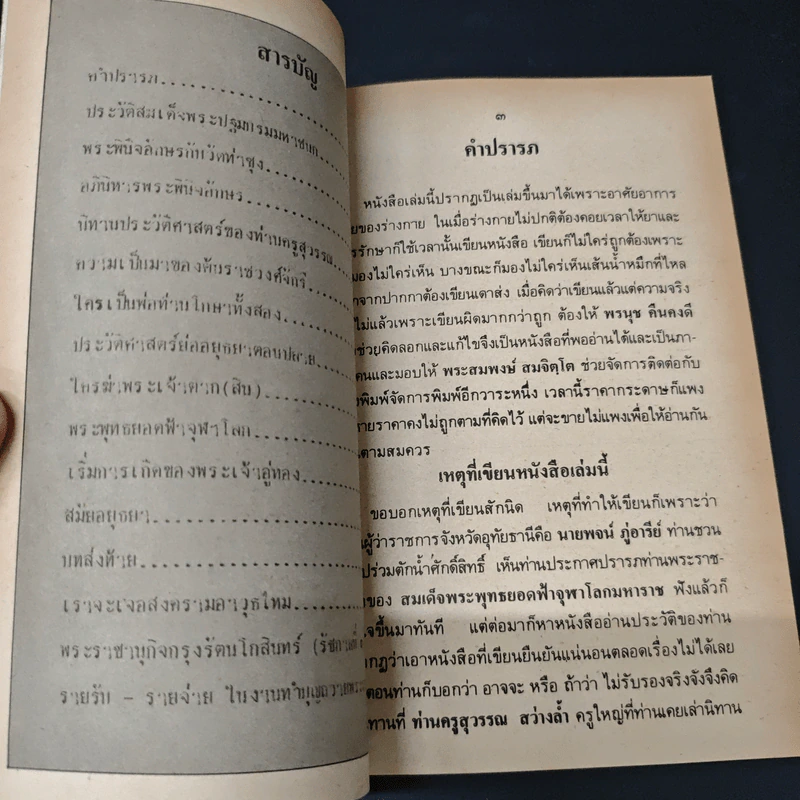 สารบัญ
คำปรารภ
ประวัติสมเด็จพระปฐมบรมมหาชนก
พระพินิจอักษรกับวัดท่าซุง
อภินิหารพระพินิจอักษร
นิทานประวัติศาสตร์ของท่านครูสุวรรณ
ความเป็นมาของต้นราชวงศ์จักรี
ใครเป็นพ่อท่านโกษาทั้งสอง
ประวัติศาสตร์ย่ออยุธยาตอนปลาย
ใครฆ่าพระเจ้าตาก(สิน)
พระพุทธยอดฟ้าจุฬาโลก
เริ่มการเกิดของพระเจ้าอู่ทอง
สมัยอยุธยา
บทส่งท้าย
เราจะเจอสงครามอาวุธใหม่
พระราชานุกิจกรุงรัตนโกสินทร์
รายรับ - รายจ่าย ในงานทำบุญถวายพระ
๓
คำปรารภ
หนังสือเล่มนี้ปรากฏเป็นเล่มขึ้นมาได้เพราะอาศัยอาการ
ของร่างกาย ในเมื่อร่างกายไม่ปกติต้องคอยเวลาให้ยาและ
รรักษาก็ใช้เวลานั้นเขียนหนังสือ เขียนก็ไม่ใคร่ถูกต้องเพราะ
มองไม่ใคร่เห็น บางขณะก็มองไม่ใคร่เห็นเส้นน้ำหมึกที่ไหล
กจากปากกาต้องเขียนเดาส่ง เมื่อคิดว่าเขียนแล้วแต่ความจริง
ไม่แล้วเพราะเขียนผิดมากกว่าถูก ต้องให้ พรนุช คืนคงดี
ช่วยคิดลอกและแก้ไขจึงเป็นหนังสือที่พออ่านได้และเป็นภา-
คนและมอบให้ พระสมพงษ์ สมจิตฺโต ช่วยจัดการติดต่อกับ
พิมพ์จัดการพิมพ์อีกวาระหนึ่ง เวลานี้ราคากระดาษก็แพง
ายราคาคงไม่ถูกตามที่คิดไว้ แต่จะขายไม่แพงเพื่อให้อ่านกัน
ตามสมควร
เหตุที่เขียนหนังสือเล่มนี้
ขอบอกเหตุที่เขียนสักนิด เหตุที่ทำให้เขียนก็เพราะว่า
ผู้ว่าราชการจังหวัดอุทัยธานีคือ นายพจน์ ภู่อารีย์ ท่านชวน
ปร่วมตักน้ำศักดิ์สิทธิ์ เห็นท่านประกาศปรารภท่านพระราช-
ของ สมเด็จพระพุทธยอดฟ้าจุฬาโลกมหาราช ฟังแล้วก็
ขึ้นมาทันที แต่ต่อมาก็หาหนังสืออ่านประวัติของท่าน
ากฏว่าเอาหนังสือที่เขียนยืนยันแน่นอนตลอดเรื่องไม่ได้เลย
ตอนท่านก็บอกว่า อาจจะ หรือ ถ้าว่า ไม่รับรองจริงจังจึงคิด
ทานที่ ท่านครูสุวรรณ สว่างล้ำ ครูใหญ่ที่ท่านเคยเล่านิทาน